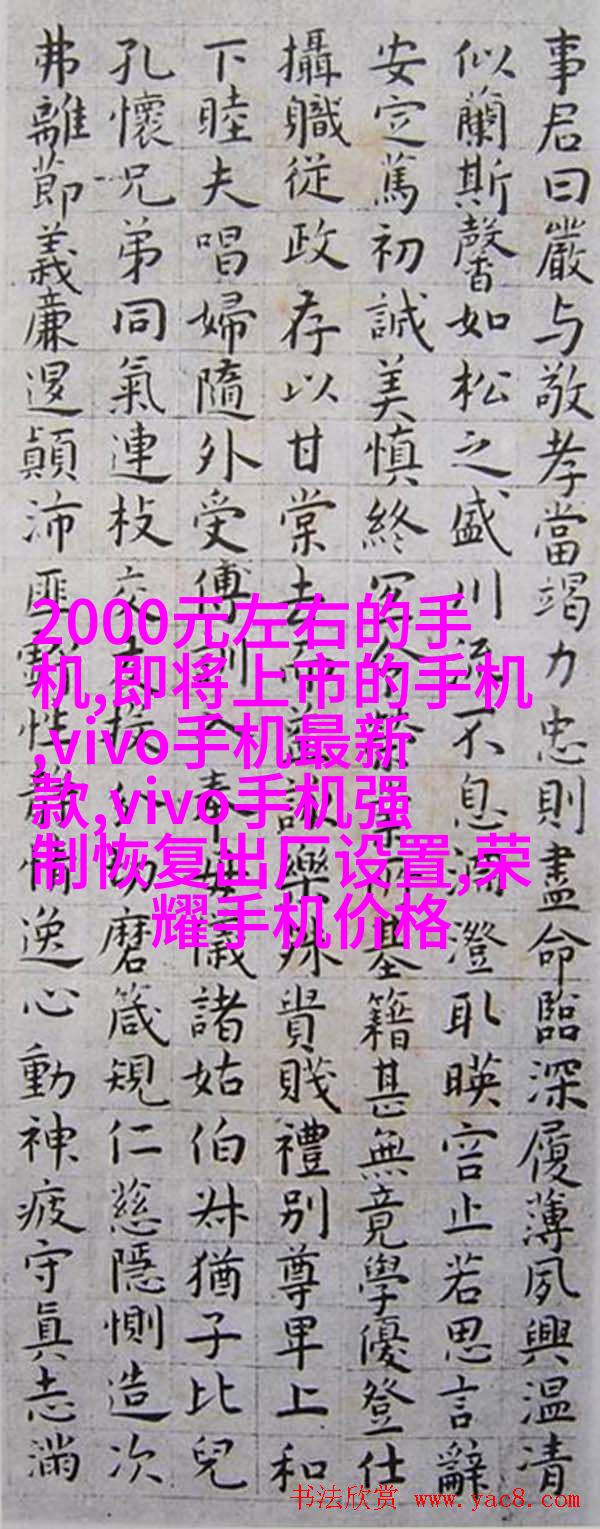 事君曰嚴与敬孝當竭力忠則盡命臨深履薄夙興温清
似蘭斯馨如松之盛川流不息淵澄取暎容止若思言辭
安定篤初誠美慎終冝令榮業所基籍甚無竟學優登仕
攝職從政存以甘棠去而益詠樂殊貴賤禮別尊卑上和
下睦夫唱婦隨外受傅訓入奉母儀諸姑伯叔猶子比兒
孔懷兄弟同氣連枝交友投分切磨箴規仁慈隱惻造次
弗離節義廉退顛沛匪虧性静情逸心動神疲守真志滿
2000元左右的手
机,即将上市的手机
,vivo手机最新
款,vivo手机强
制恢复出厂设置,荣
耀手机价格
书法欣赏 www.yac8.com